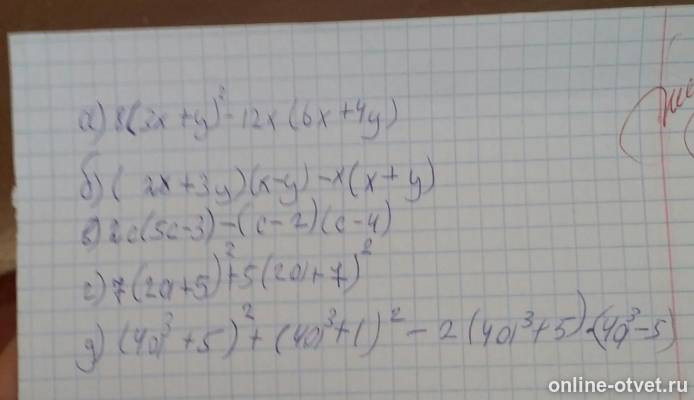 а) 8(2x+y)²-12x(6x+4y)
б) (2x+3y)(x-y)-x(x+y)
в) 2c(5c-3)-(c-2)(c-4)
г) 7(2a+5)²+5(2a+7)²
д) (4a³+5)²+(4a³+1)²-2(4a³+5)·(4a³-5)
online-otvet.ru